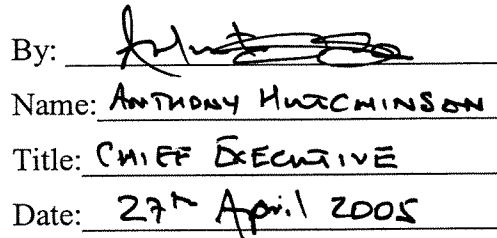 By:
Name: ANTHONY HUTCHINSON
Title: CHIEF EXECUTIVE
Date: 27th April 2005